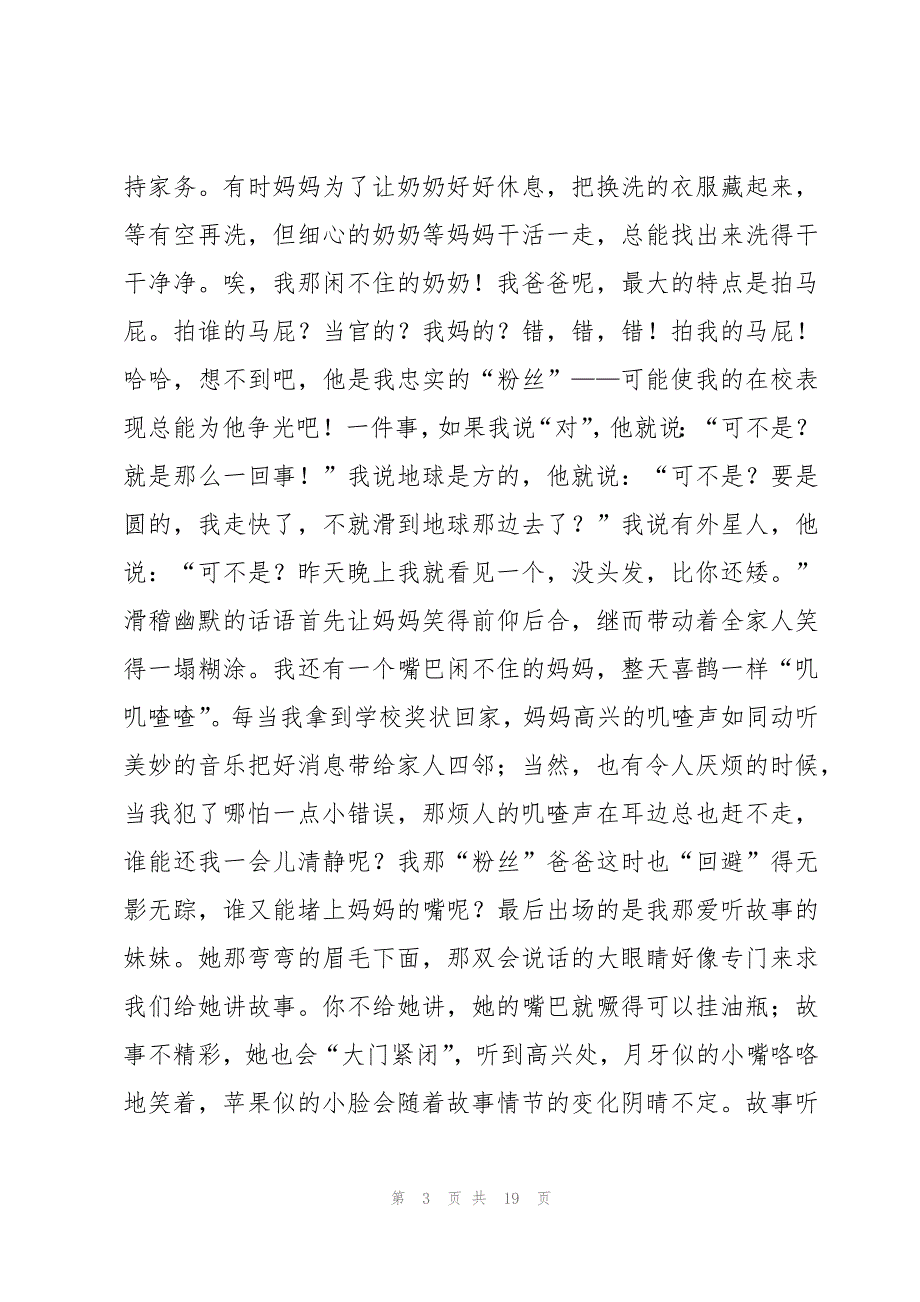 持家务。有时妈妈为了让奶奶好好休息，把换洗的衣服藏起来，
等有空再洗，但细心的奶奶等妈妈干活一走，总能找出来洗得干
干净净。唉，我那闲不住的奶奶！我爸爸呢，最大的特点是拍马
屁。拍谁的马屁？当官的？我妈的？错，错，错！拍我的马屁！
哈哈，想不到吧，他是我忠实的“粉丝”——可能使我的在校表
现总能为他争光吧！一件事，如果我说“对”，他就说：“可不是？
就是那么一回事！”我说地球是方的，他就说：“可不是？要是
圆的，我走快了，不就滑到地球那边去了？”我说有外星人，他
说：“可不是？昨天晚上我就看见一个，没头发，比你还矮。”
滑稽幽默的话语首先让妈妈笑得前仰后合，继而带动着全家人笑
得一塌糊涂。我还有一个嘴巴闲不住的妈妈，整天喜鹊一样“叽
叽喳喳”。每当我拿到学校奖状回家，妈妈高兴的叽喳声如同动听
美妙的音乐把好消息带给家人四邻；当然，也有令人厌烦的时候，
当我犯了哪怕一点小错误，那烦人的叽喳声在耳边总也赶不走，
谁能还我一会儿清静呢？我那“粉丝”爸爸这时也“回避”得无
影无踪，谁又能堵上妈妈的嘴呢？最后出场的是我那爱听故事的
妹妹。她那弯弯的眉毛下面，那双会说话的大眼睛好像专门来求
我们给她讲故事。你不给她讲，她的嘴巴就噘得可以挂油瓶；故
事不精彩，她也会“大门紧闭”，听到高兴处，月牙似的小嘴咯咯
地笑着，苹果似的小脸会随着故事情节的变化阴晴不定。故事听
第 3 页 共 19 页